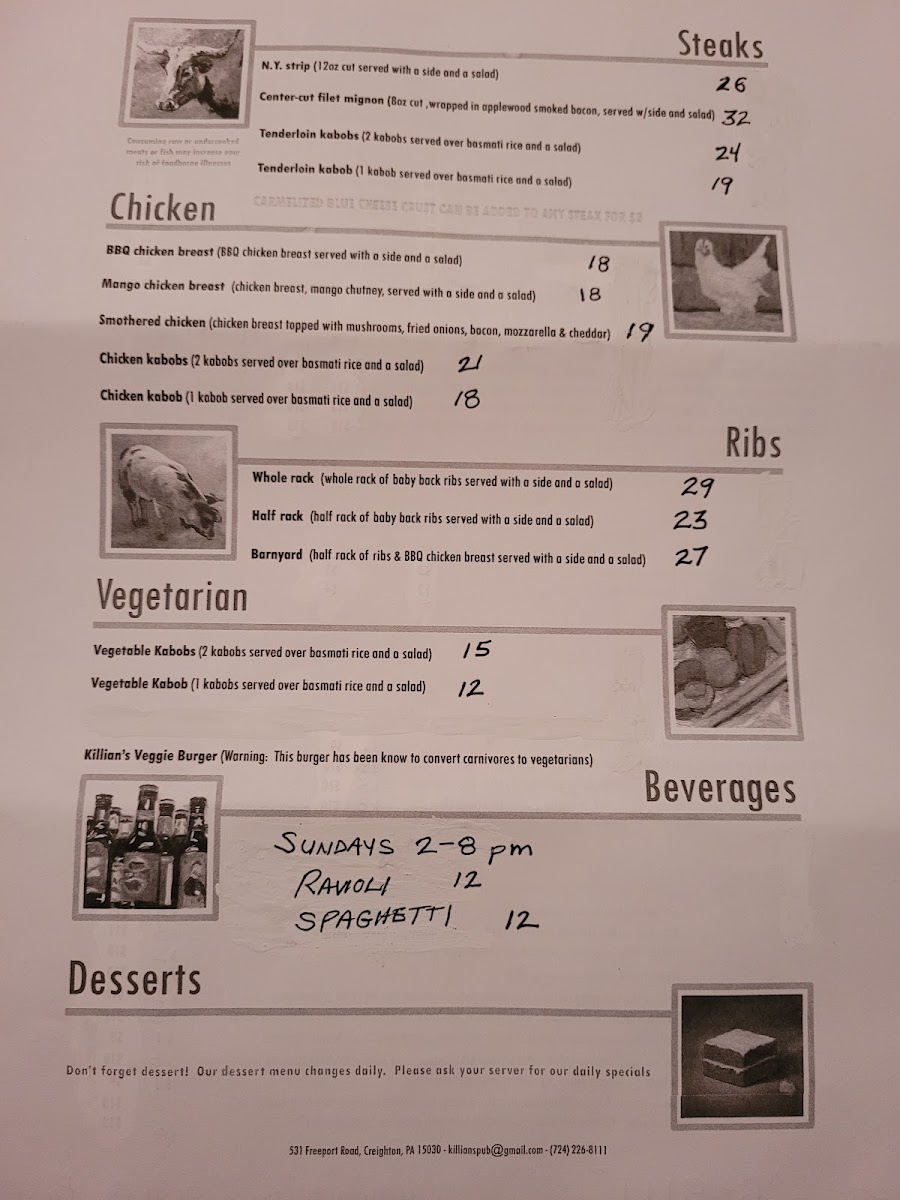 Steaks
N.Y. strip (12oz cut served with a side and a salad) 26
Center-cut filet mignon (8oz cut ,wrapped in applewood smoked bacon, served w/side and salad) 32
Tenderloin kabobs (2 kabobs served over basmati rice and a salad) 24
Tenderloin kabob (1 kabob served over basmati rice and a salad) 19
Consuming raw or undercooked
meats or fish may increase your
risk of foodborne illnesses
CARMELIZED BLUE CHEESE CRUST CAN BE ADDED TO ANY STEAK FOR $2
Chicken
BBQ chicken breast (BBQ chicken breast served with a side and a salad) 18
Mango chicken breast (chicken breast, mango chutney, served with a side and a salad) 18
Smothered chicken (chicken breast topped with mushrooms, fried onions, bacon, mozzarella & cheddar) 19
Chicken kabobs (2 kabobs served over basmati rice and a salad) 21
Chicken kabob (1 kabob served over basmati rice and a salad) 18
Ribs
Whole rack (whole rack of baby back ribs served with a side and a salad) 29
Half rack (half rack of baby back ribs served with a side and a salad) 23
Barnyard (half rack of ribs & BBQ chicken breast served with a side and a salad) 27
Vegetarian
Vegetable Kabobs (2 kabobs served over basmati rice and a salad) 15
Vegetable Kabob (1 kabobs served over basmati rice and a salad) 12
Killian's Veggie Burger (Warning: This burger has been know to convert carnivores to vegetarians)
Beverages
SUNDAYS 2-8 pm
RAVIOLI 12
SPAGHETTI 12
Desserts
Don't forget dessert! Our dessert menu changes daily. Please ask your server for our daily specials
531 Freeport Road, Creighton, PA 15030 - killianspub@gmail.com - (724) 226-8111